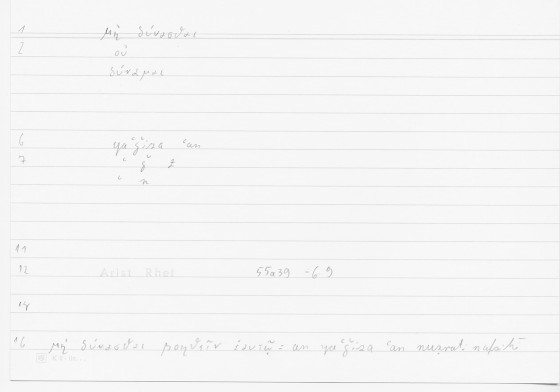 1 μὴ δύνασθαι
2 οὐ
δύναμαι
6 yaʿǧiza ʿan
7 " ǧ 2
" n
11
12 Arist Rhet 55a39 - b9
14
16 μὴ δύνασθαι βοηθεῖν ἑαυτῷ: an yaʿǧiza ʿan nuṣrati nafsihī